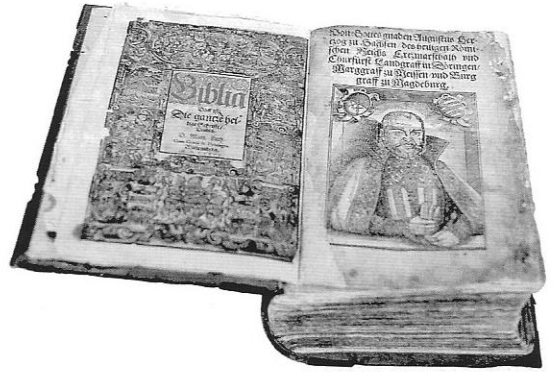 Biblia
Das ist:
Die gantze hei-
lige Schrifft/
Deudsch.
D. Mart. Luth.
Wittemberg.
Von Gottes gnaden Augustus Her-
tzog zu Sachsen des heiligen Römi-
schen Reichs Ertzmarschalh vnd
Churfürst Landgraff in Döringen/
Marggraff zu Meissen vnd Burg
graff zu Magdeburg.